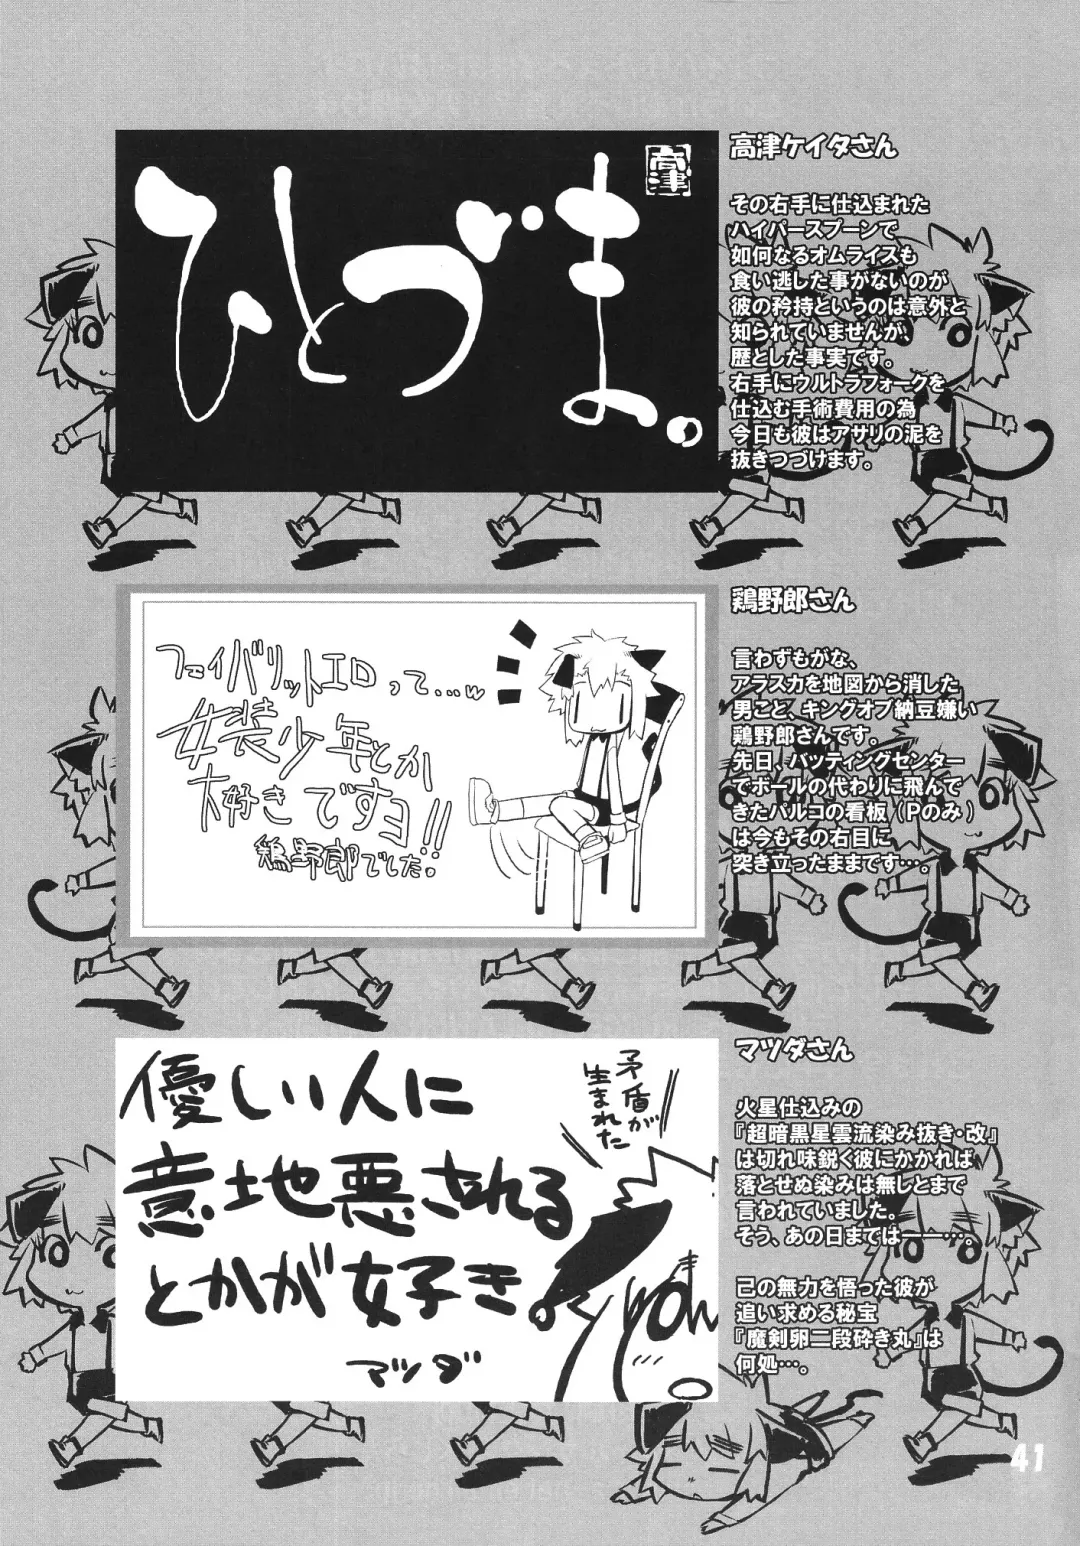 高津ケイタさん
その右手に仕込まれた
ハイパースプーンで
如何なるオムライスも
食い逃した事がないのが
彼の矜持というのは意外と
知られていませんが、
歴とした事実です。
右手にウルトラフォークを
仕込む手術費用の為
今日も彼はアサリの泥を
抜きつづけます。
高津
ひとづま。
鶏野郎さん
言わずもがな、
アラスカを地図から消した
男こと、キングオブ納豆嫌い
鶏野郎さんです。
先日、バッティングセンター
でボールの代わりに飛んで
きたパルコの看板（Pのみ）
は今もその右目に
突き立ったままです…。
フェイバリットエロって…w
女装少年とか
大好きですヨ!!
鶏野郎でした。
マツダさん
火星仕込みの
『超暗黒星雲流染み抜き・改』
は切れ味鋭く彼にかかれば
落とせぬ染みは無しとまで
言われていました。
そう、あの日までは――…。
己の無力を悟った彼が
追い求める秘宝
『魔剣卵二段砕き丸』は
何処…。
優しい人に
意地悪される
とかが好き。
マツダ
矛盾が
生まれた
41